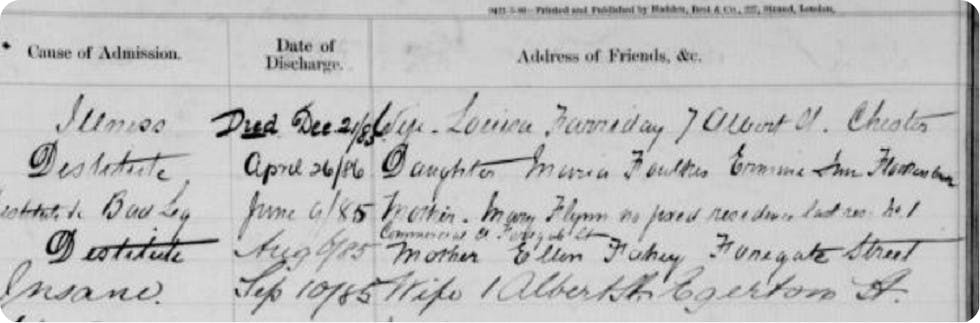 Printed and Published by Hadden, Best & Co., 227, Strand, London.
Cause of Admission. Date of Discharge. Address of Friends, &c.
Illness Died Dec 21/85 Wife. Louisa Farriday 7 Albert St. Chester
Destitute April 26/86 Daughter Maria Faulkes Ermine Inn
Bad Leg June 9/85 Mother. Mary Flynn no fixed residence last res: No 1
Commercial Ct Foregate St
Destitute Aug 85 Mother Ellen Fahey Foregate Street
Insane. Sep 10/85 Wife 1 Albert St. Egerton St.